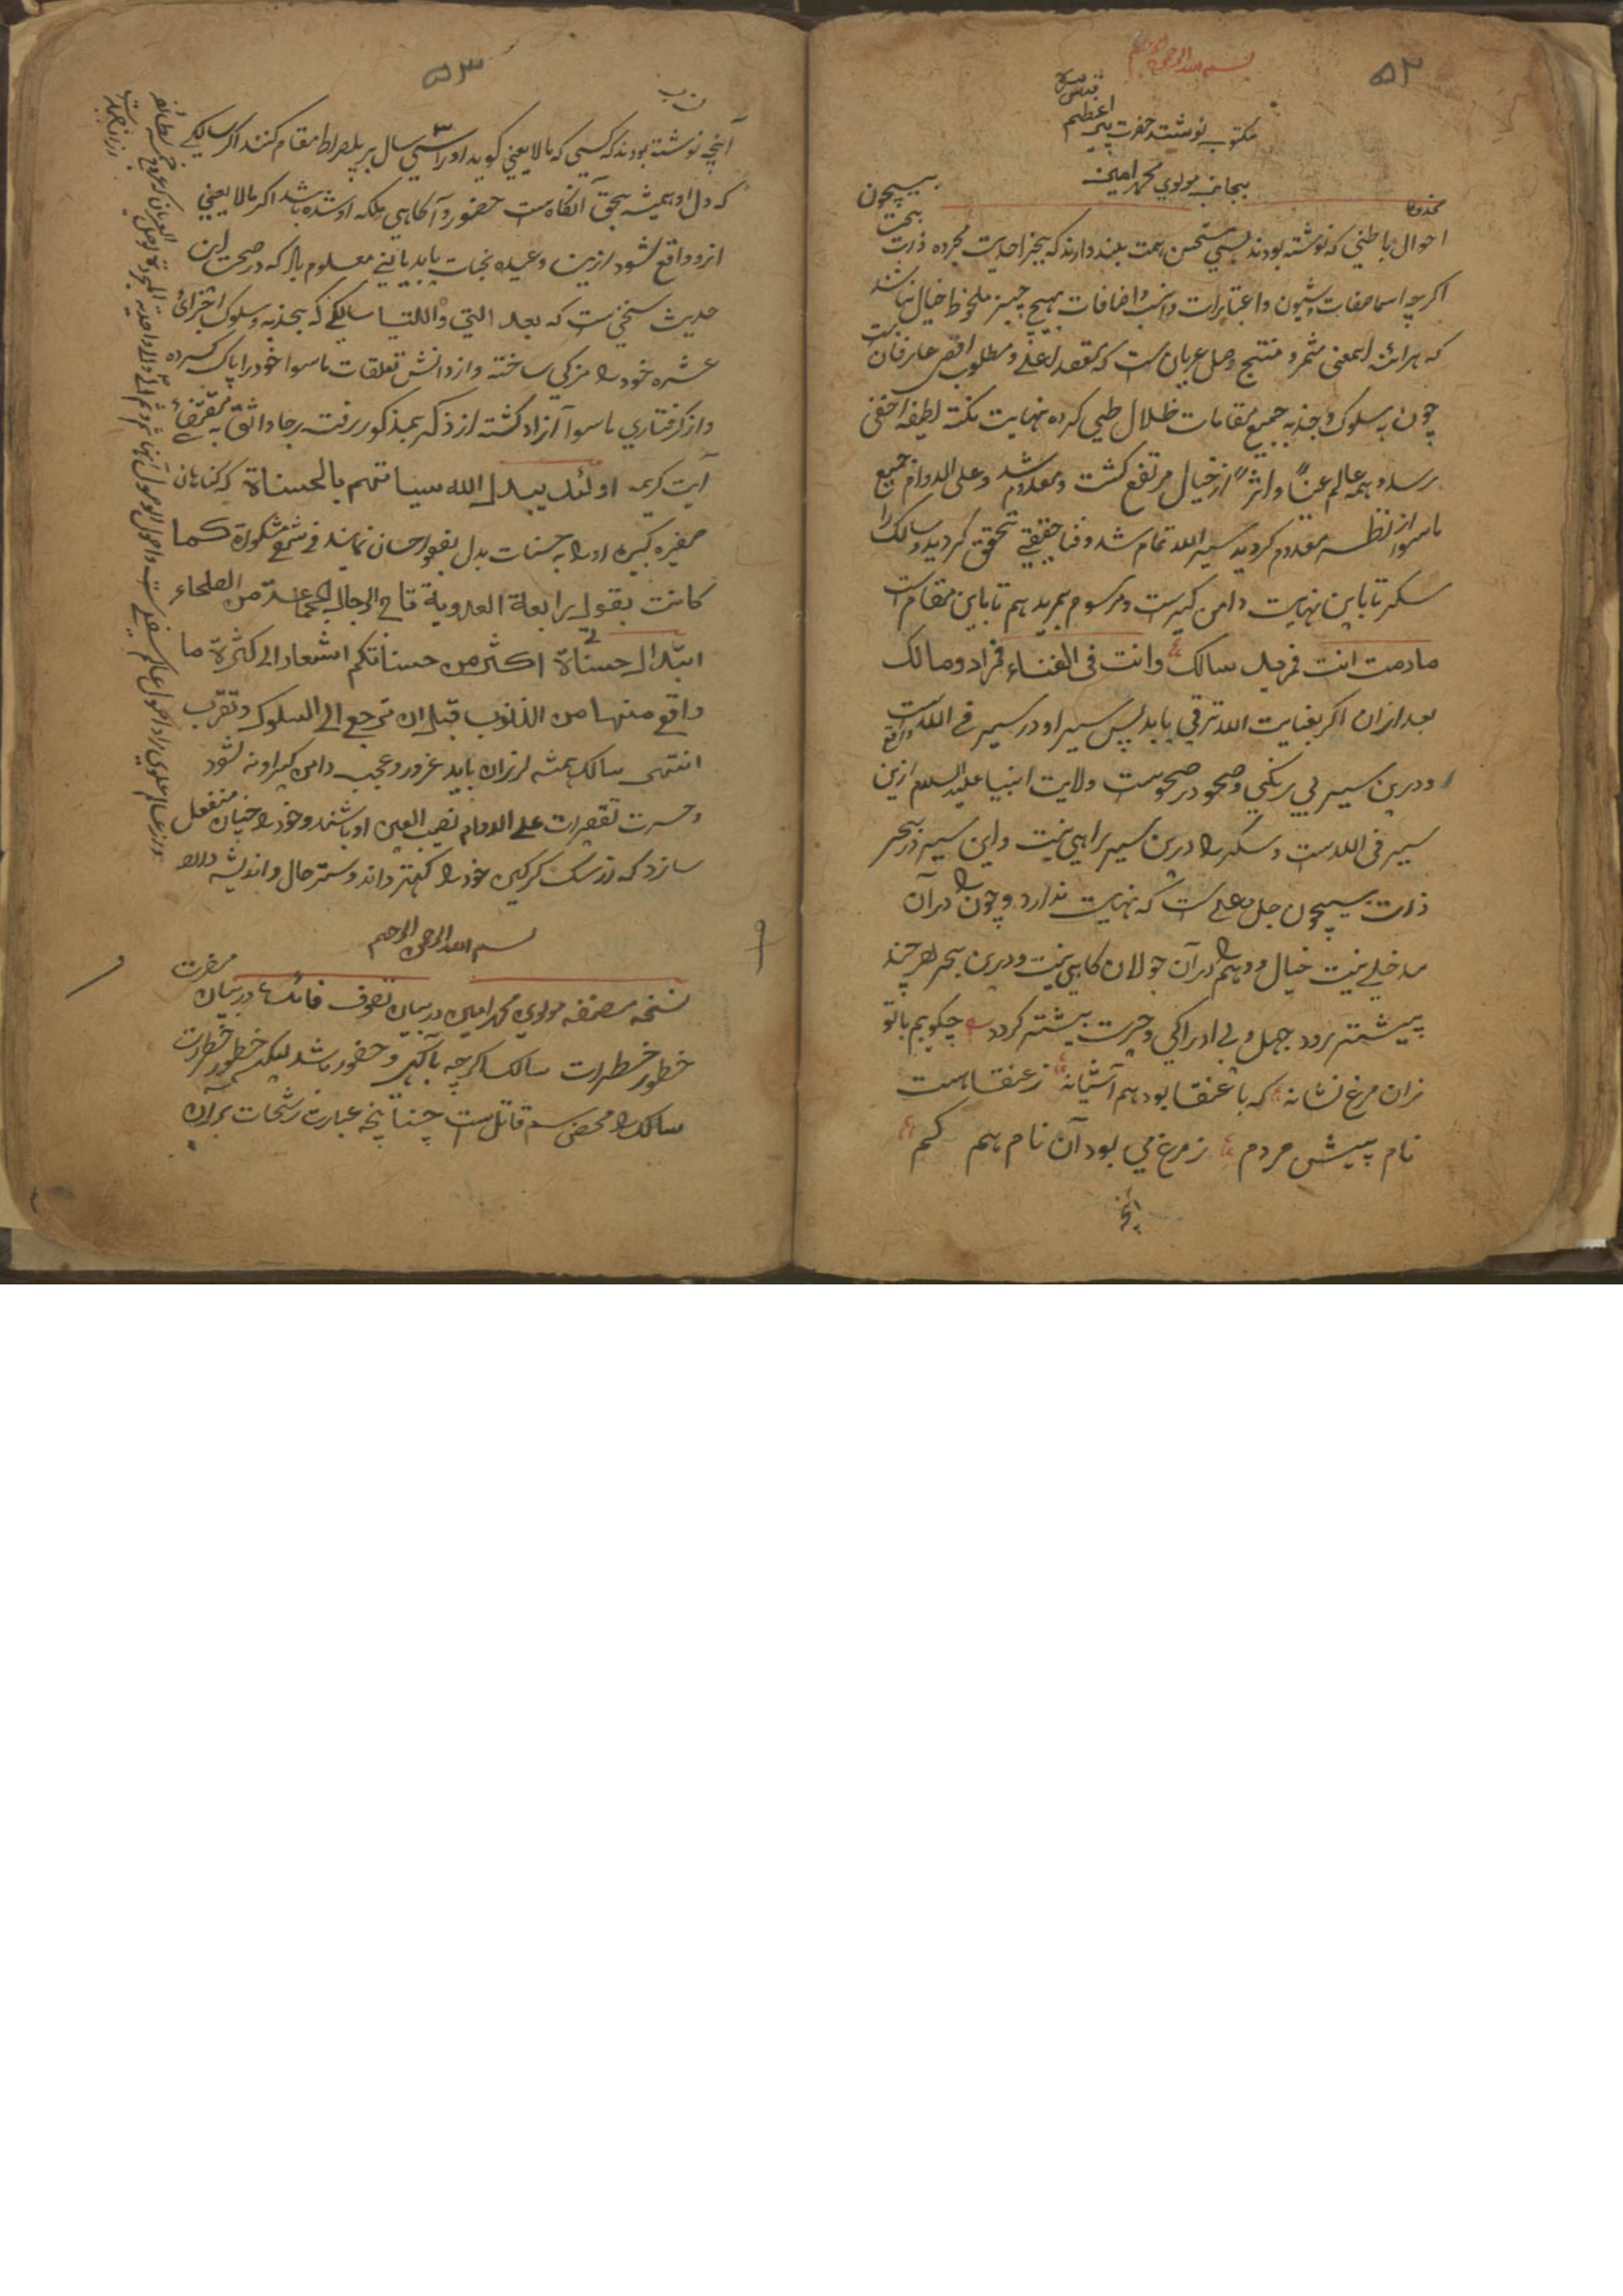 ۵۲
بسم الله الرحمن الرحیم
قدس سره
مکتوب نوشته حضرت پیر اعظم
بجانب مولوي محمد امین
مخدوما
احوال باطني که نوشته بودند بسي مستحسن همت بلند دارند که بجز احدیت مجرده ذات بحت بیچون
اگرچه اسما صفات و شیون و اعتبارات و نسب و اضافات هیچ چیز ملحوظ خیال نباشد
که هرآئنه این معنی مثمر و منتج وصل عریان ست که مقصد اعلے و مطلوب اقصی عارفان ست
چون به سلوک و جذبه جمیع مقامات ظلال طي کرده نهایت نکته لطیفه اخفی
برسد و همه عالم عینًا و اثرًا از خیال مرتفع گشت و معدوم شد و علی الدوام جمیع
ماسوا از نظر معدوم گردید سیر الی الله تمام شد و فنا حقیقي متحقق گردید و سالک را
سکر تا باین نهایت دامن گیر ست و مرسوم بمرید هم تا باین مقام ست
مادمت انت فمرید سالک وانت فی الفناء فمراد ومالک
بعد ازان اگر بعنایت الله ترقي یابد پس سیر او در سیر في الله ست واقع
و درین سیر بي رنگي و صحو در صحوست ولایت انبیا علیه السلام ازین
سیر فی الله ست و سکر را درین سیر راهي نیست و این سیر در بحر
ذات بیچون جل و علے ست که نهایت ندارد و چون را در آن
مدخلے نیست خیال و وهم را در آن جولان گاهي نیست و درین بحر هر چند
پیشتر رود جهل و بي ادراکي و حیرت بیشتر گردد چگویم باتو
زان مرغ نشانه که با عنقا بود هم آشیانه ز عنقا هست
نام پیش مردم ز مرغ من بود آن نام هم گم
آنچه
۵۳
آنچه نوشته بودند که کسي که مالا یعني گوید او را سي سال بر پلصراط مقام کنند اگر سالکے
که دل او همیشه بحق آگاه ست حضور و آگاهي ملکه او شده باشد اگر مالا یعني
ازو واقع شود ازین وعیده نجات یابد یا نے معلوم باد که در صحت این
حدیث سخني ست که بعد التي واللتیا سالکے که بجذبه و سلوک اجزائ
عشره خود را مزکي ساخته و از دانش تعلقات ماسوا خود را پاک کرده
و از گرفتاري ماسوا آزاد گشته از ذکر بمذکور رفته رجا واثق به مقتضائ
آیت کریمه اولئک یبدل الله سیاتهم بالحسناة که گناهان
صغیره کبیره او را به حسنات بدل بفواحسان نمایند في مشکوة کما
کانت بقول رابعة العدویة تاج الرجال لجماعة من الصلحاء
ابتدال حسناة اکثر من حسناتکم اشعار الی کثرة ما
واقع منها من الذنوب قبل ان ترجع الی السلوک وتقرب
انتهی سالک همشه لرزان باید غرور و عجب دامن گیر او نه شود
و حسرت تقصیرات علی الدوام نصب العین او باشند و خود را چنان منفعل
سازد که از سگ گرگین خود را کهتر داند و ستر حال و اندیشه دارد
بسم الله الرحمن الرحیم
نسخه مصنفه مولوي محمد امین در بیان تصوف فائده در بیان مضرت
خطور خطرات سالک اگرچه با آگهي و حضور باشد لیکن خطور خطرات
سالک را محض سم قاتل ست چنانچه عبارت رشحات برآن